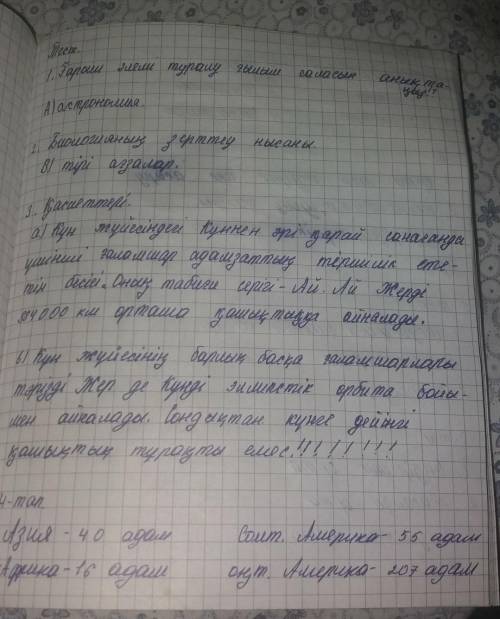 Тест.
1. Ғарыш әлемі туралы ғылым саласын анықта-
ңыз!?
А) астрономия.
2. Биологияның зерттеу нысаны.
В) тірі ағзалар.
3. Қасиеттері.
а) Күн жүйесіндегі Күннен әрі қарай санағанда
үшінші ғаламшар адамзаттың тіршілік ете-
тін бесігі. Оның табиғи серігі - Ай. Ай Жерді
384000 км орташа қашықтықта айналады.
b) Күн жүйесінің барлық басқа ғаламшарлары
тәрізді Жер де Күнді эллипстік орбита бойы-
мен айналады. Сондықтан күнге дейінгі
қашықтық тұрақты емес!!!!!!!
4-тап.
Азия - 40 адам Солт. Америка - 55 адам
Африка - 16 адам оңт. Америка - 207 адам